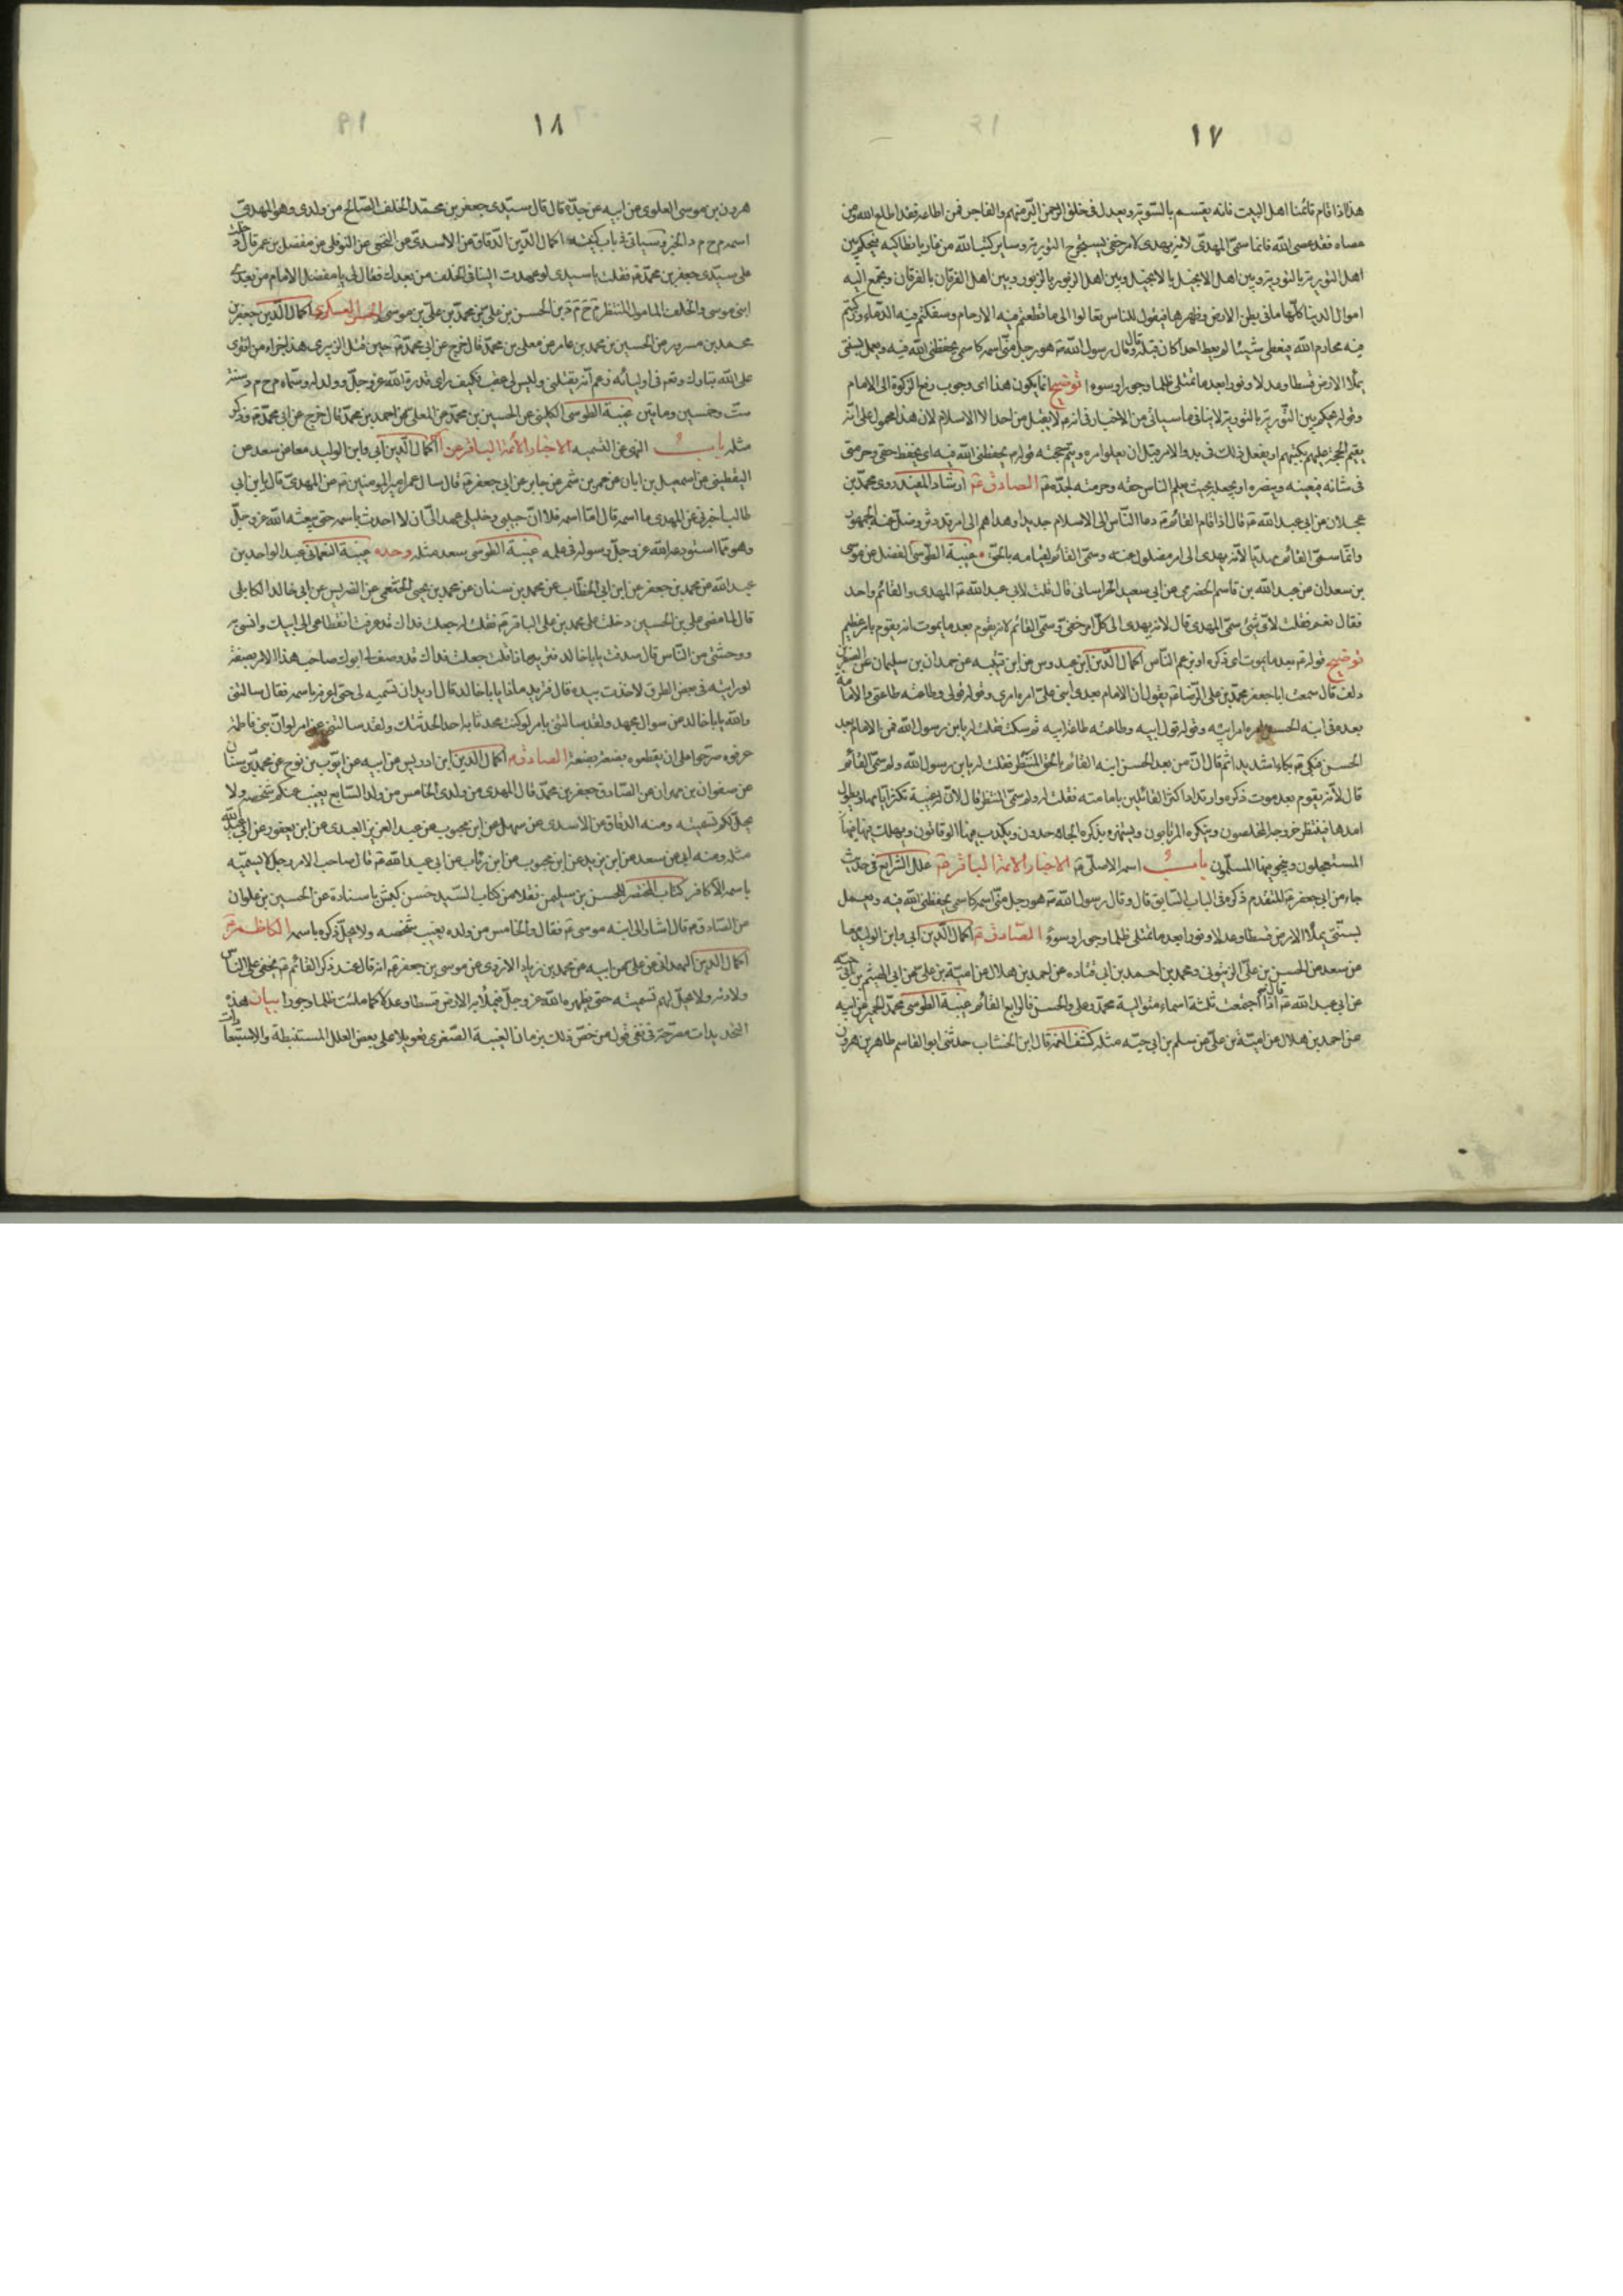 ١٧
هذا اذا قام قائمنا اهل البيت فانه يقسم بالسويّة ويعدل في خلق الرحمن البرّ منهم والفاجر فمن اطاعه فقد اطاع الله ومن
عصاه فقد عصى الله فانما سمّى المهدىّ لانه يهدى لامر خفىّ يستخرج التورية وساير كتب الله من غار بانطاكيه فيحكم بين
اهل التورية بالتورية وبين اهل الانجيل بالانجيل وبين اهل الزبور بالزبور وبين اهل الفرقان بالفرقان ويجمع اليه
اموال الدنيا كلّها ما في بطن الارض وظهرها فيقول للناس تعالوا الى ما قطعتم فيه الارحام وسفكتم فيه الدماء وركبتم
فيه محارم الله فيعطى شيئا لم يعط احدا كان قبله قال وقال رسول الله ص هو رجل منّى اسمه كاسمى يحفظنى الله فيه ويعمل بسنتى
يملأ الارض قسطا وعدلا ونورا بعد ما تمتلى ظلما وجورا وسوءا توضيح انما يكون هذا اى وجوب رفع الزكوة الى الامام
وقوله يحكم بين التورية بالتورية لا ينافى ما سياتى من الاخبار فى انه ع لا يقبل من احد الا الاسلام لان هذا محمول على انه
يقيم الحجّة عليهم بكتبهم او يفعل ذلك فى بدو الامر قبل ان يعلو امره ويتم حجته قوله ع يحفظنى الله فيه اى يحفظ حقى وحرمتى
فى شانه فيعينه وينصره او يجعله بحيث يعلم الناس حقه وحرمته لجدّه ص الصادق ع ارشاد المفيد روى محمّد بن
عجلان عن ابي عبد الله ع قال اذا قام القائم ع دعا النّاس الى الاسلام جديدا وهداهم الى امر قد دثر وضلّ عنه الجمهور
وانّما سمّى القائم مهديّا لانّه يهدى الى امر مضلول عنه وسمّى القائم لقيامه بالحقّ غيبة الطوسى الفضل عن موسى
بن سعدان عن عبد الله بن قاسم الحضرمى عن ابي سعيد الخراسانى قال قلت لابي عبد الله ع المهدى والقائم واحد
فقال نعم فقلت لاىّ شئ سمّى المهدى قال لانه يهدى الى كلّ امر خفىّ وسمّى القائم لانه يقوم بعد ما يموت انه يقوم بامر عظيم
توضيح قوله ع بعد ما يموت اى ذكره او بزعم النّاس اكمال الدّين ابن عبدوس عن ابن قتيبه عن حمدان بن سليمان عن الصقر بن
دلف قال سمعت ابا جعفر محمّد بن على الرّضا ع يقول ان الامام بعدى ابنى علىّ امره امرى وقوله قولى وطاعته طاعتى والامامة
بعده فى ابنه الحسن امره امر ابيه وقوله قول ابيه وطاعته طاعة ابيه ثم سكت فقلت له يا بن رسول الله فمن الامام بعد
الحسن فبكى ع بكاء شديدا ثمّ قال انّ من بعد الحسن ابنه القائم بالحق المنتظر فقلت له يا بن رسول الله ولم سمّى القائم
قال لانّه يقوم بعد موت ذكره وارتداد اكثر القائلين بامامته فقلت له ولم سمّى المنتظر قال لانّ له غيبة تكثر ايّامها ويطول
امدها فينتظر خروجه المخلصون وينكره المرتابون ويستهزء بذكره الجاحدون ويكذب فيها الوقاتون ويهلك فيها
المستعجلون وينجو فيها المسلّمون باب اسمه الاصلى ع الاخبار الائمة الباقر ع علل الشرايع فى حديث
جابر عن ابي جعفر ع المتقدم ذكره فى الباب السّابق قال وقال رسول الله ص هو رجل منّى اسمه كاسمى يحفظنى الله فيه ويعمل
بسنّتى يملأ الارض قسطا وعدلا ونورا بعد ما تمتلى ظلما وجورا وسوءً الصّادق ع اكمال الدّين ابى وابن الوليد معا
عن سعد عن الحسن بن علىّ الزيتونى ومحمد بن احمد بن ابى قتاده عن احمد بن هلال عن اميّة بن على عن ابي الهيثم بن ابى حيّه
عن ابي عبد الله ع قال اذا اجتمعت ثلثة اسماء متوالية محمّد وعلى والحسن فالرابع القائم غيبة الطوسى محمّد الحميرى عن ابيه
عن احمد بن هلال عن اميّة بن علىّ عن سلم بن ابي حيّه مثله كشف الغمة قال ابن الخشاب حدثنى ابو القاسم طاهر بن هرون
١٨
هرون بن موسى العلوى عن ابيه عن جدّه قال قال سيّدى جعفر بن محمّد الخلف الصّالح من ولدى وهو المهدى
اسمه م ح م د الخبر وسياتى فى باب كنيته اكمال الدّين الدّقاق عن الاسدىّ عن النخعى عن النوفلى عن مفضل بن عمر قال دخلت
على سيّدى جعفر بن محمّد ع فقلت يا سيدى لو عهدت الينا فى الخلف من بعدك فقال لى يا مفضل الامام من بعدى
ابنى موسى والخلف المامول المنتظر م ح م د بن الحسن بن على بن محمّد بن علىّ بن موسى الحسن العسكرى اكمال الدّين جعفر بن
محمد بن مسرور عن الحسين بن محمد بن عامر عن معلى بن محمّد قال خرج عن ابي محمّد ع حين قتل الزبيرى هذا جزاء من افترى
على الله تبارك وتعالى فى اوليائه زعم انّه يقتلنى وليس لى عقب فكيف راى قدرة الله عز وجلّ وولد له وسمّاه م ح م د سنة
ستّ وخمسين ومايتين غيبة الطوسى الكلينى عن الحسين بن محمّد عن المعلى عن احمد بن محمّد قال خرج عن ابي محمّد ع وذكر
مثله باب النهى عن التسميه الاخبار الائمّة الباقر ع اكمال الدّين ابى وابن الوليد معا عن سعد عن
اليقطينى عن اسمعيل بن ابان عن عمر بن شمر عن جابر عن ابي جعفر ع قال سال عمر امير المومنين ع عن المهدىّ قال يا بن ابي
طالب اخبرنى عن المهدى ما اسمه قال امّا اسمه فلا انّ حبيبى وخليلى عهد الىّ ان لا احدث باسمه حتى يبعثه الله عز وجلّ
وهو ممّا استودع الله عز وجلّ رسوله فى علمه غيبة الطوسى سعد مثله وحده غيبة النعمانى عبد الواحد بن
عبد الله عن محمد بن جعفر عن ابن ابي الخطّاب عن محمد بن سنان عن محمد بن يحيى الخثعمى عن الضريس عن ابي خالد الكابلى
قال لما مضى على بن الحسين دخلت على محمد بن على الباقر ع فقلت له جعلت فداك قد عرفت انقطاعى الى ابيك وانسى به
ووحشتى من النّاس قال صدقت يا با خالد فتريد ما ذا قلت جعلت فداك قد وصف لى ابوك صاحب هذا الامر بصفة
لو رايته فى بعض الطرق لاخذت بيده قال فتريد ما ذا يا با خالد قال اريد ان تسميه لى حتى اعرفه باسمه فقال سالتنى
والله يا با خالد عن سوال مجهد ولقد سالتنى بامر لو كنت محدثا به احدا لحدّثتك ولقد سالتنى عن امر لو انّ بنى فاطمة
عرفوه حرصوا على ان يقطعوه بضعة بضعة الصادق ع اكمال الدين ابن ادريس عن ابيه عن ايّوب بن نوح عن محمّد بن سنان
عن صفوان بن مهران عن الصّادق جعفر بن محمّد قال المهدى من ولدى الخامس من ولد السّابع يغيب عنكم شخصه ولا
يحلّ لكم تسميته ومنه الدقاق عن الاسدى عن سهل عن ابن محبوب عن عبد العزيز العبدى عن ابن ابي يعفور عن ابي عبد الله
مثله ومنه ابى عن سعد عن ابن يزيد عن ابن محبوب عن ابن رئاب عن ابي عبد الله ع قال صاحب الامر رجل لا يسمّيه
باسمه الا كافر كتاب المحتضر للحسن بن سليمن نقلا من كتاب السّيد حسن كبش باسناده عن الحسين بن علوان
عن الصّادق ع قال اشار الى ابنه موسى ع فقال والخامس من ولده يغيب شخصه ولا يحلّ ذكره باسمه الكاظم ع
اكمال الدين الهمدانى عن على عن ابيه عن محمد بن زياد الازدى عن موسى بن جعفر ع انه قال عند ذكر القائم ع يخفى على النّاس
ولادته ولا يحلّ لهم تسميته حتى يظهره الله عز وجلّ فيملأ به الارض قسطا وعدلا كما ملئت ظلما وجورا بيان هذه
التحديدات مصرّحة فى نفى قول من خصّ ذلك بزمان الغيبة الصّغرى تعويلا على بعض العلل المستنبطة والاستبعادات